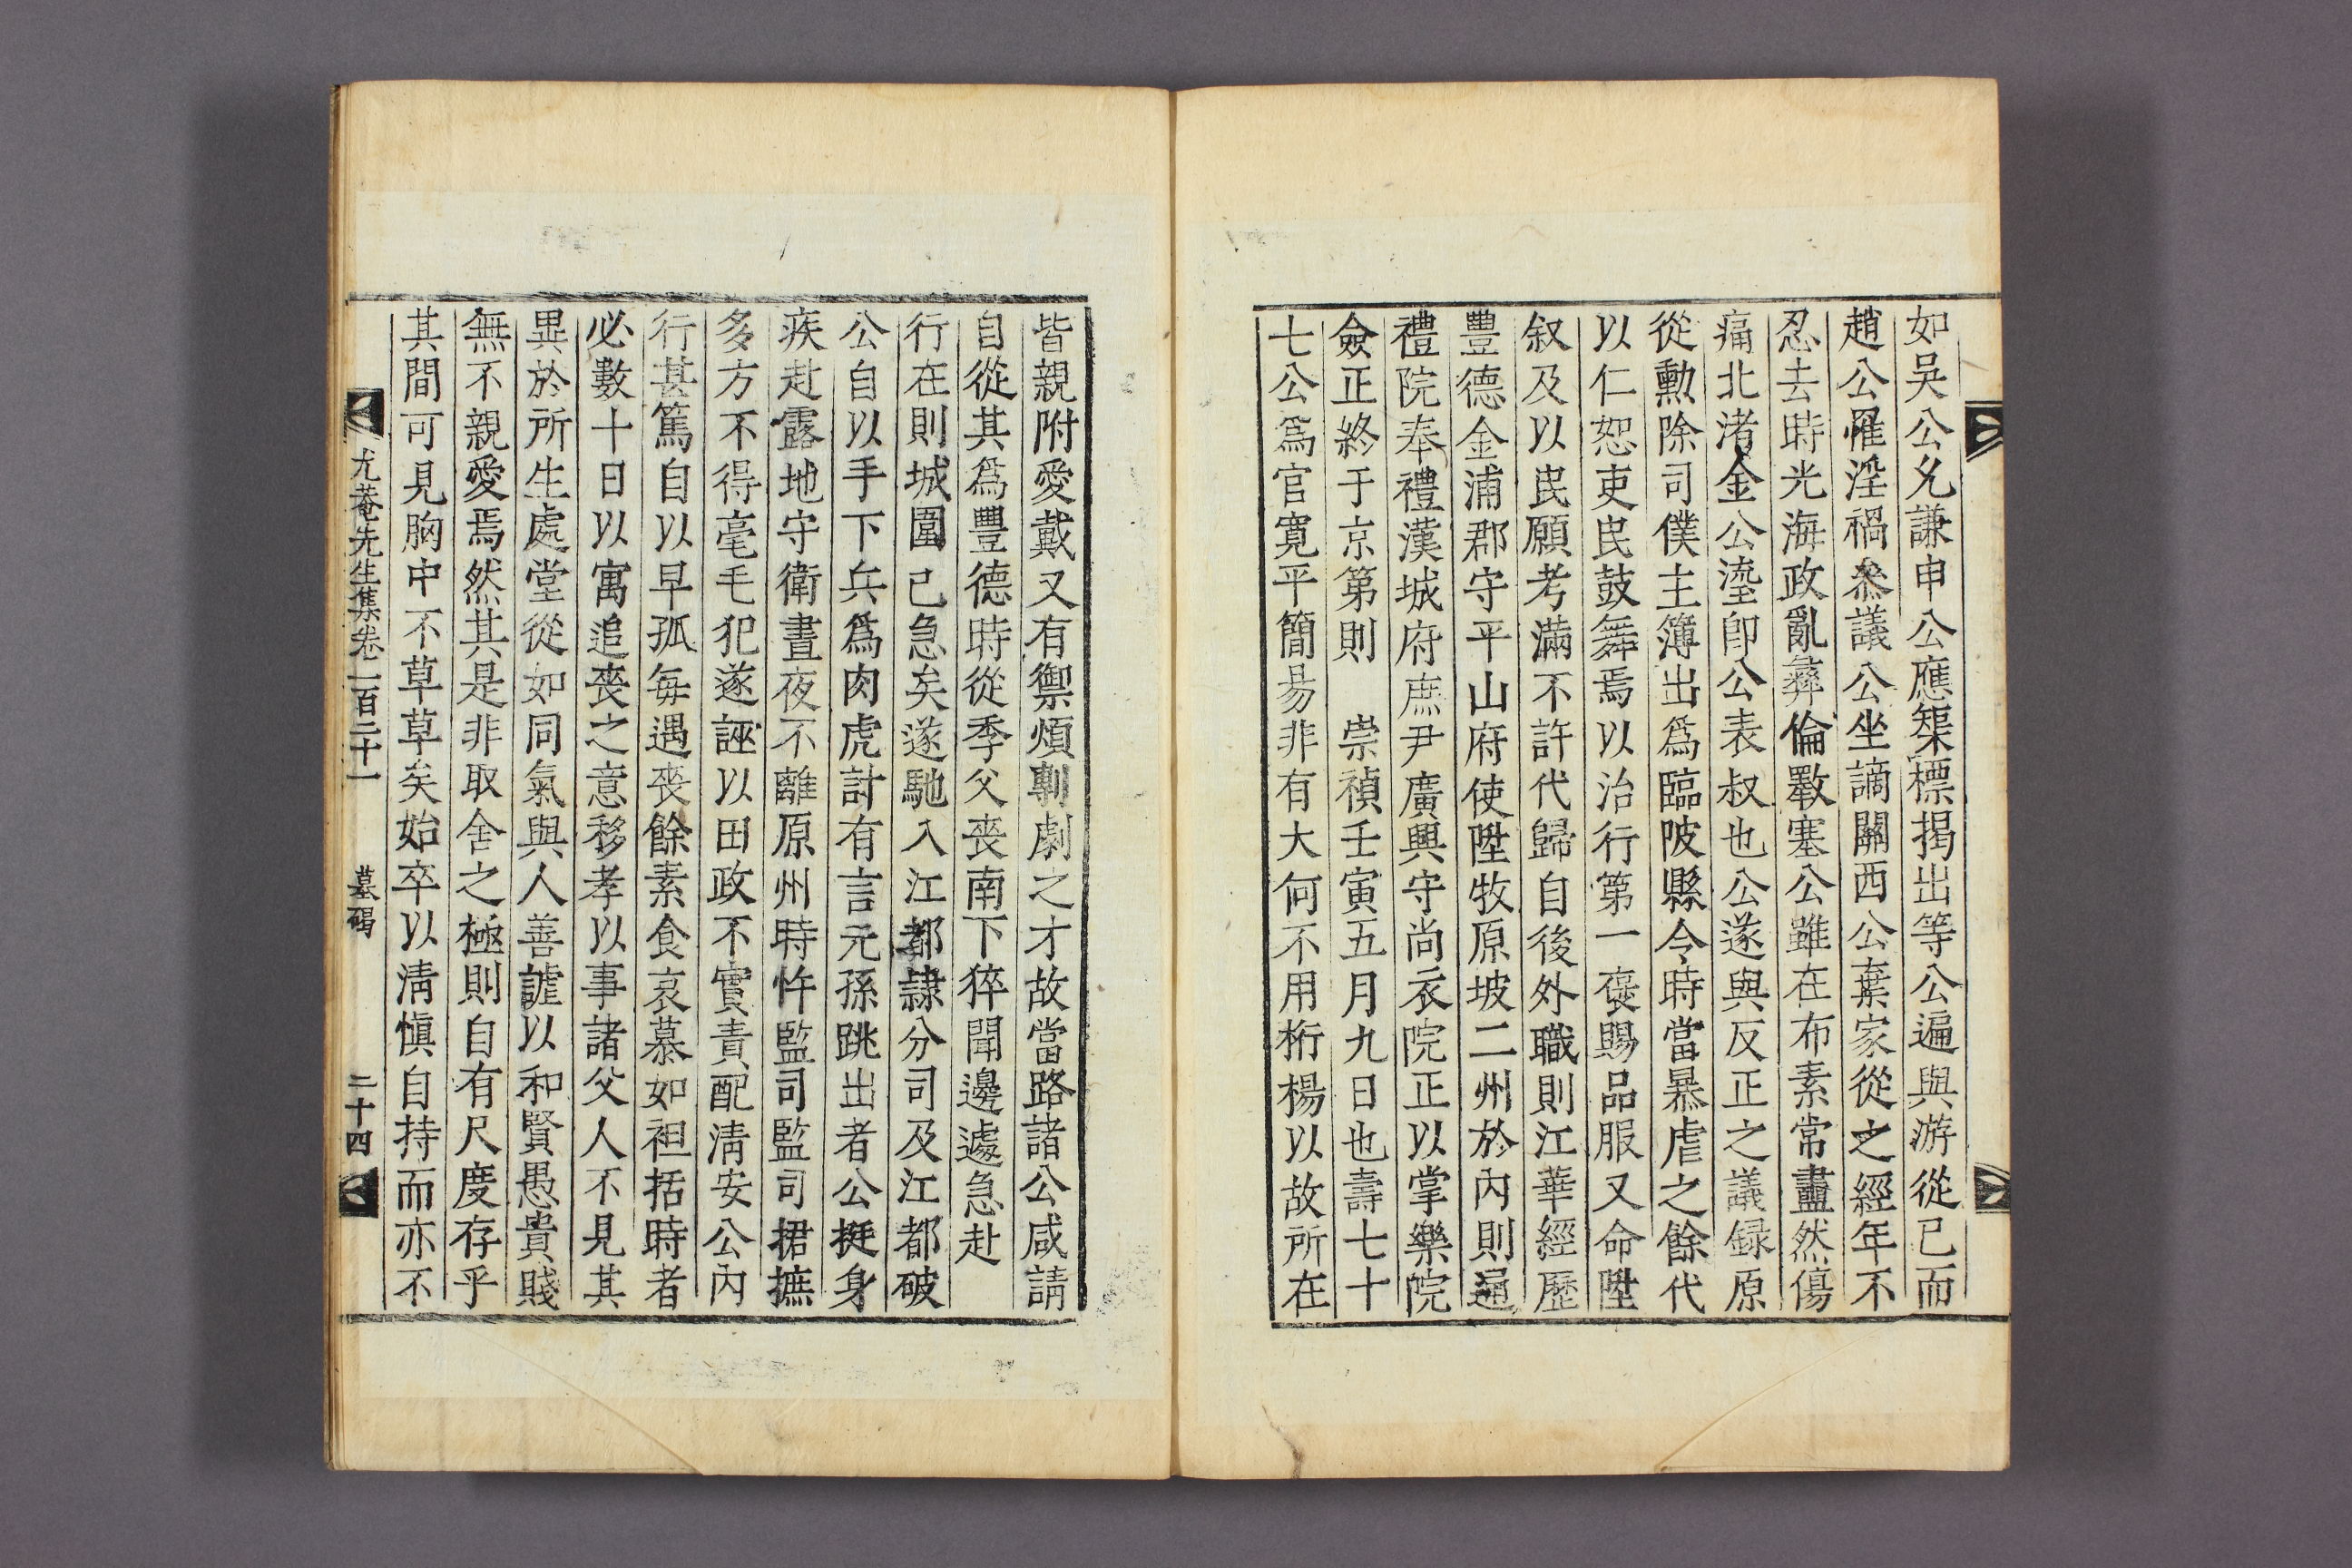 如吳公允謙申公應榘標掲出等公遍與游從已而
趙公罹淫禍叅議公坐謫關西公棄家從之經年不
忍去時光海政亂彝倫斁塞公雖在布素常衋然傷
痛北渚金公瑬卽公表叔也公遂與反正之議録原
從勳除司僕主簿出爲臨陂縣令時當暴虐之餘代
以仁恕吏民鼓舞焉以治行第一褒賜品服又命陞
叙及以民願考滿不許代歸自後外職則江華經歷
豐德金浦郡守平山府使陞牧原坡二州於內則通
禮院奉禮漢城府庶尹廣興守尚衣院正以掌樂院
僉正終于京第則　崇禎壬寅五月九日也壽七十
七公爲官寬平簡易非有大何不用桁楊以故所在
皆親附愛戴又有禦煩剸劇之才故當路諸公咸請
自從其爲豐德時從季父喪南下猝聞邊遽急赴
行在則城圍已急矣遂馳入江都隷分司及江都破
公自以手下兵爲肉虎計有言元孫跳出者公挺身
疾赴露地守衛晝夜不離原州時忤監司監司捃摭
多方不得毫毛犯遂誣以田政不實責配淸安公內
行甚篤自以早孤每遇喪餘素食哀慕如袒括時者
必數十日以寓追喪之意移孝以事諸父人不見其
異於所生處堂從如同氣與人善謔以和賢愚貴賤
無不親愛焉然其是非取舍之極則自有尺度存乎
其間可見胸中不草草矣始卒以淸愼自持而亦不
尤菴先生集卷一百二十一　墓碣　二十四